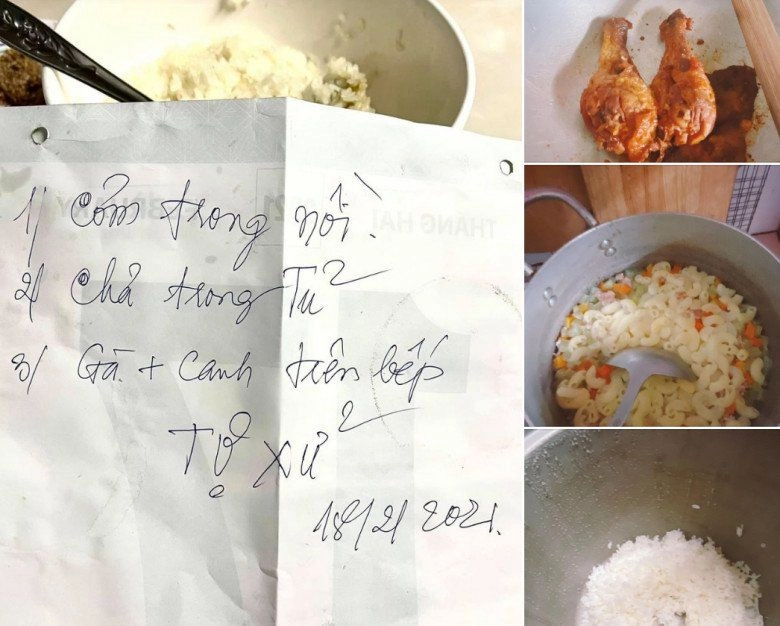 1) Cơm trong nồi.
2) Chả trong Tủ
3) Gà + canh trên bếp
Tự xử
18/2/2021.